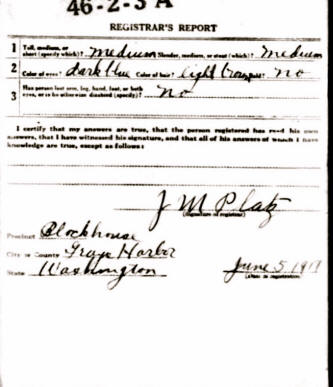 46-2-3 A
REGISTRAR'S REPORT
1 Tall, medium, or short (specify which)? Medium Slender, medium, or stout (which)? Medium
2 Color of eyes? dark blue Color of hair? light brown Bald? No
3 Has person lost arm, leg, hand, foot, or both eyes, or is he otherwise disabled (specify)? No
I certify that my answers are true, that the person registered has read his own
answers, that I have witnessed his signature, and that all of his answers of which I have
knowledge are true, except as follows:
J M Platz
(Signature of registrar)
Precinct Blockhouse
City or County Grays Harbor
State Washington June 5, 1917
(Date of registration)